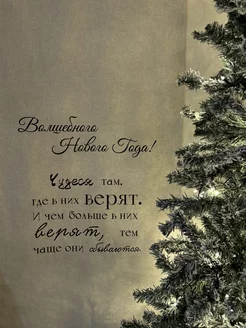 Волшебного
Нового Года!
Чудеса там,
где в них верят.
И чем больше в них
верят, тем
чаще они сбываются.